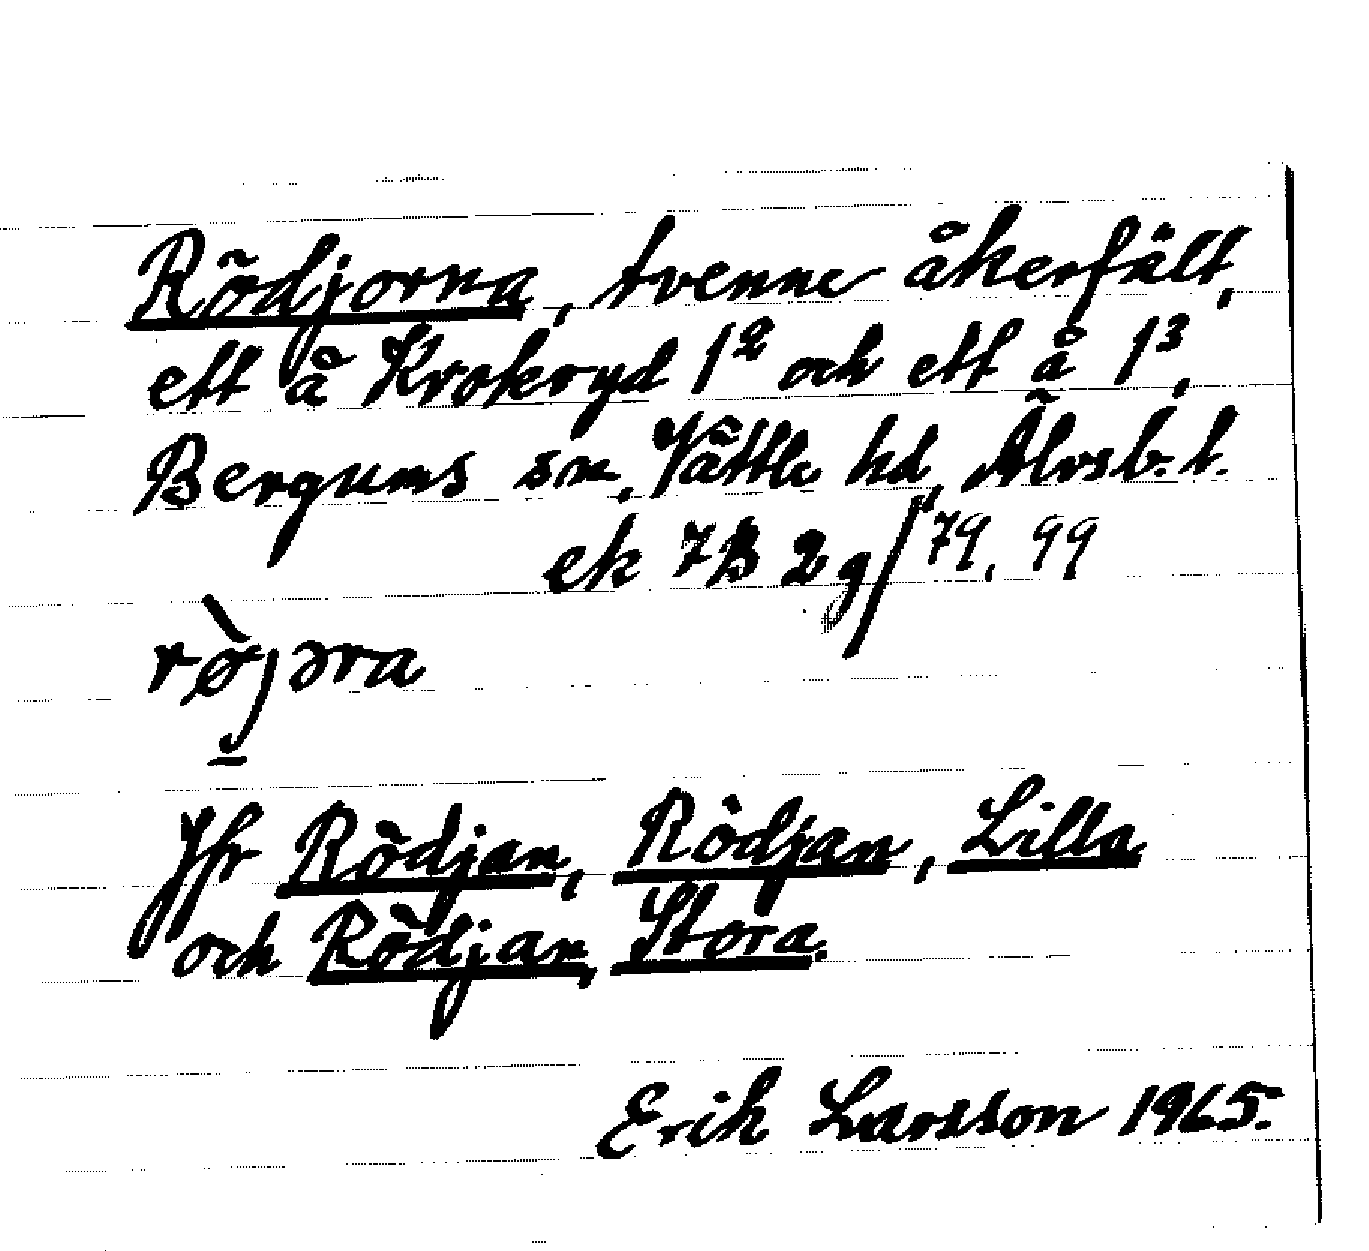 Rödjorna, tvenne åkerfält,
ett å Krokryd 1² och ett å 1³,
Bergums sn, Vättle hd, Älvsb. l.
ek 7B 2g/79, 99
røjɔra
Jfr Rödjan, Rödjan, Lilla
och Rödjan, Stora.
Erik Larsson 1965.